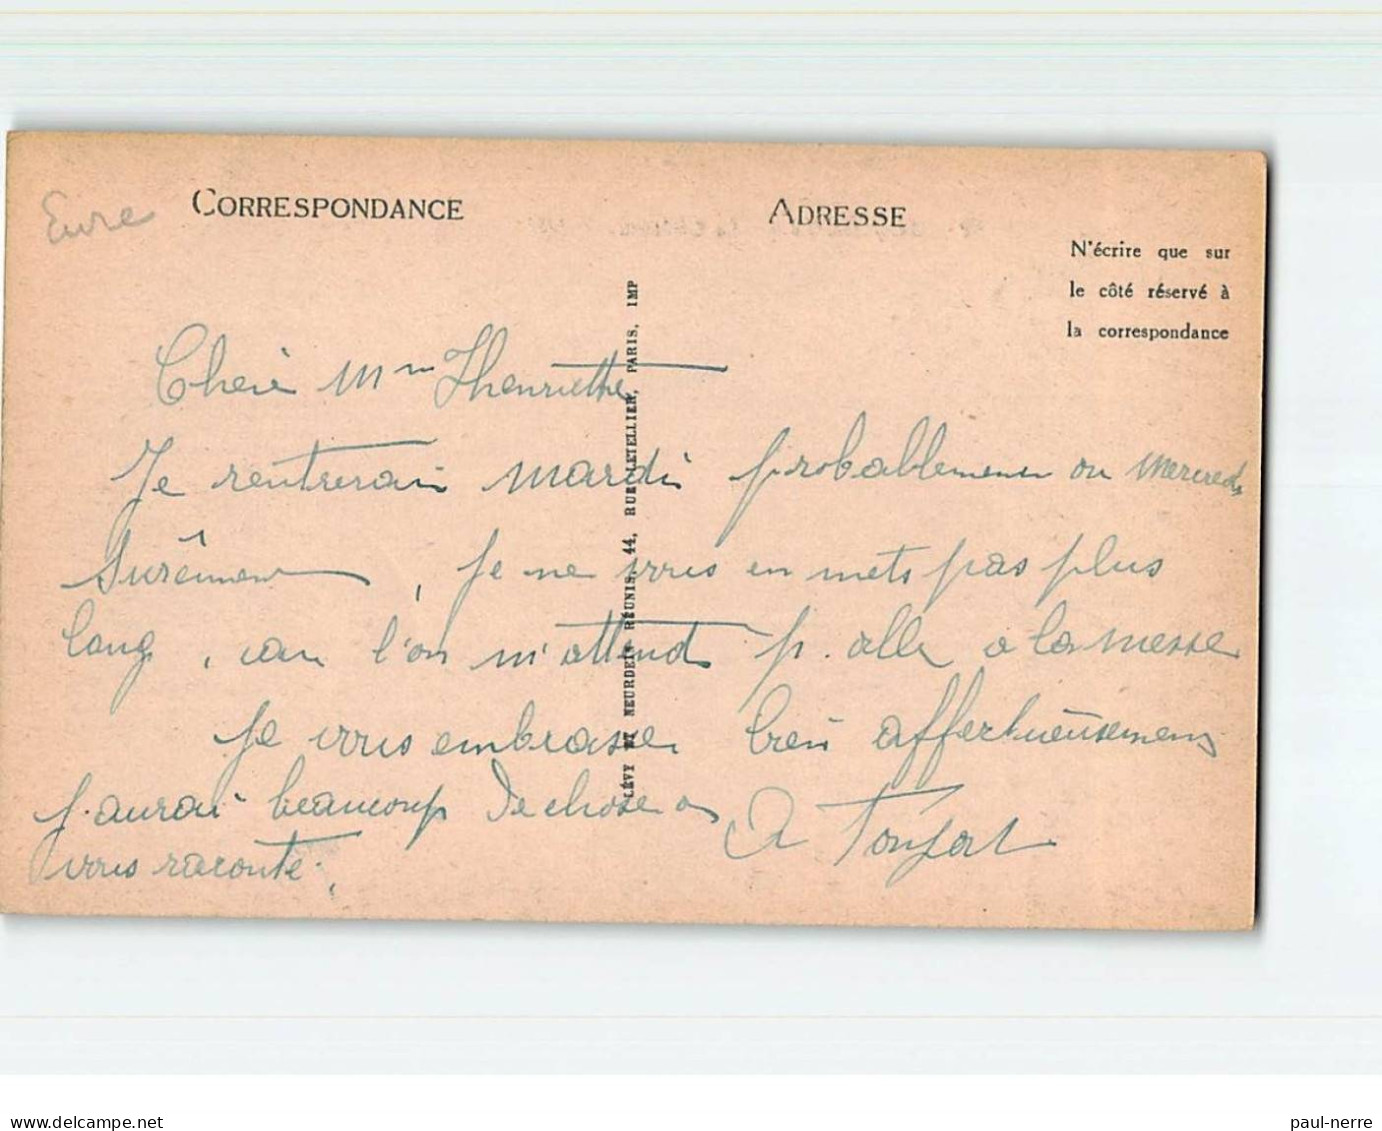 Eure
CORRESPONDANCE
ADRESSE
N'écrire que sur
le côté réservé à
la correspondance
LÉVY ET NEURDEIN RÉUNIS, 44, RUE LETELLIER, PARIS, IMP
Chere Mm Henriette
Je rentrerai mardi probablemen ou Mercredi
Surêmen, Je ne vous en mets pas plus
long, car l'on m'attend p. alle a la messe
Je vous embrasse bien affectueusemen
J. aurai beaucoup de chose a
vous raconte.
A
delcampe.net
paul-nerre